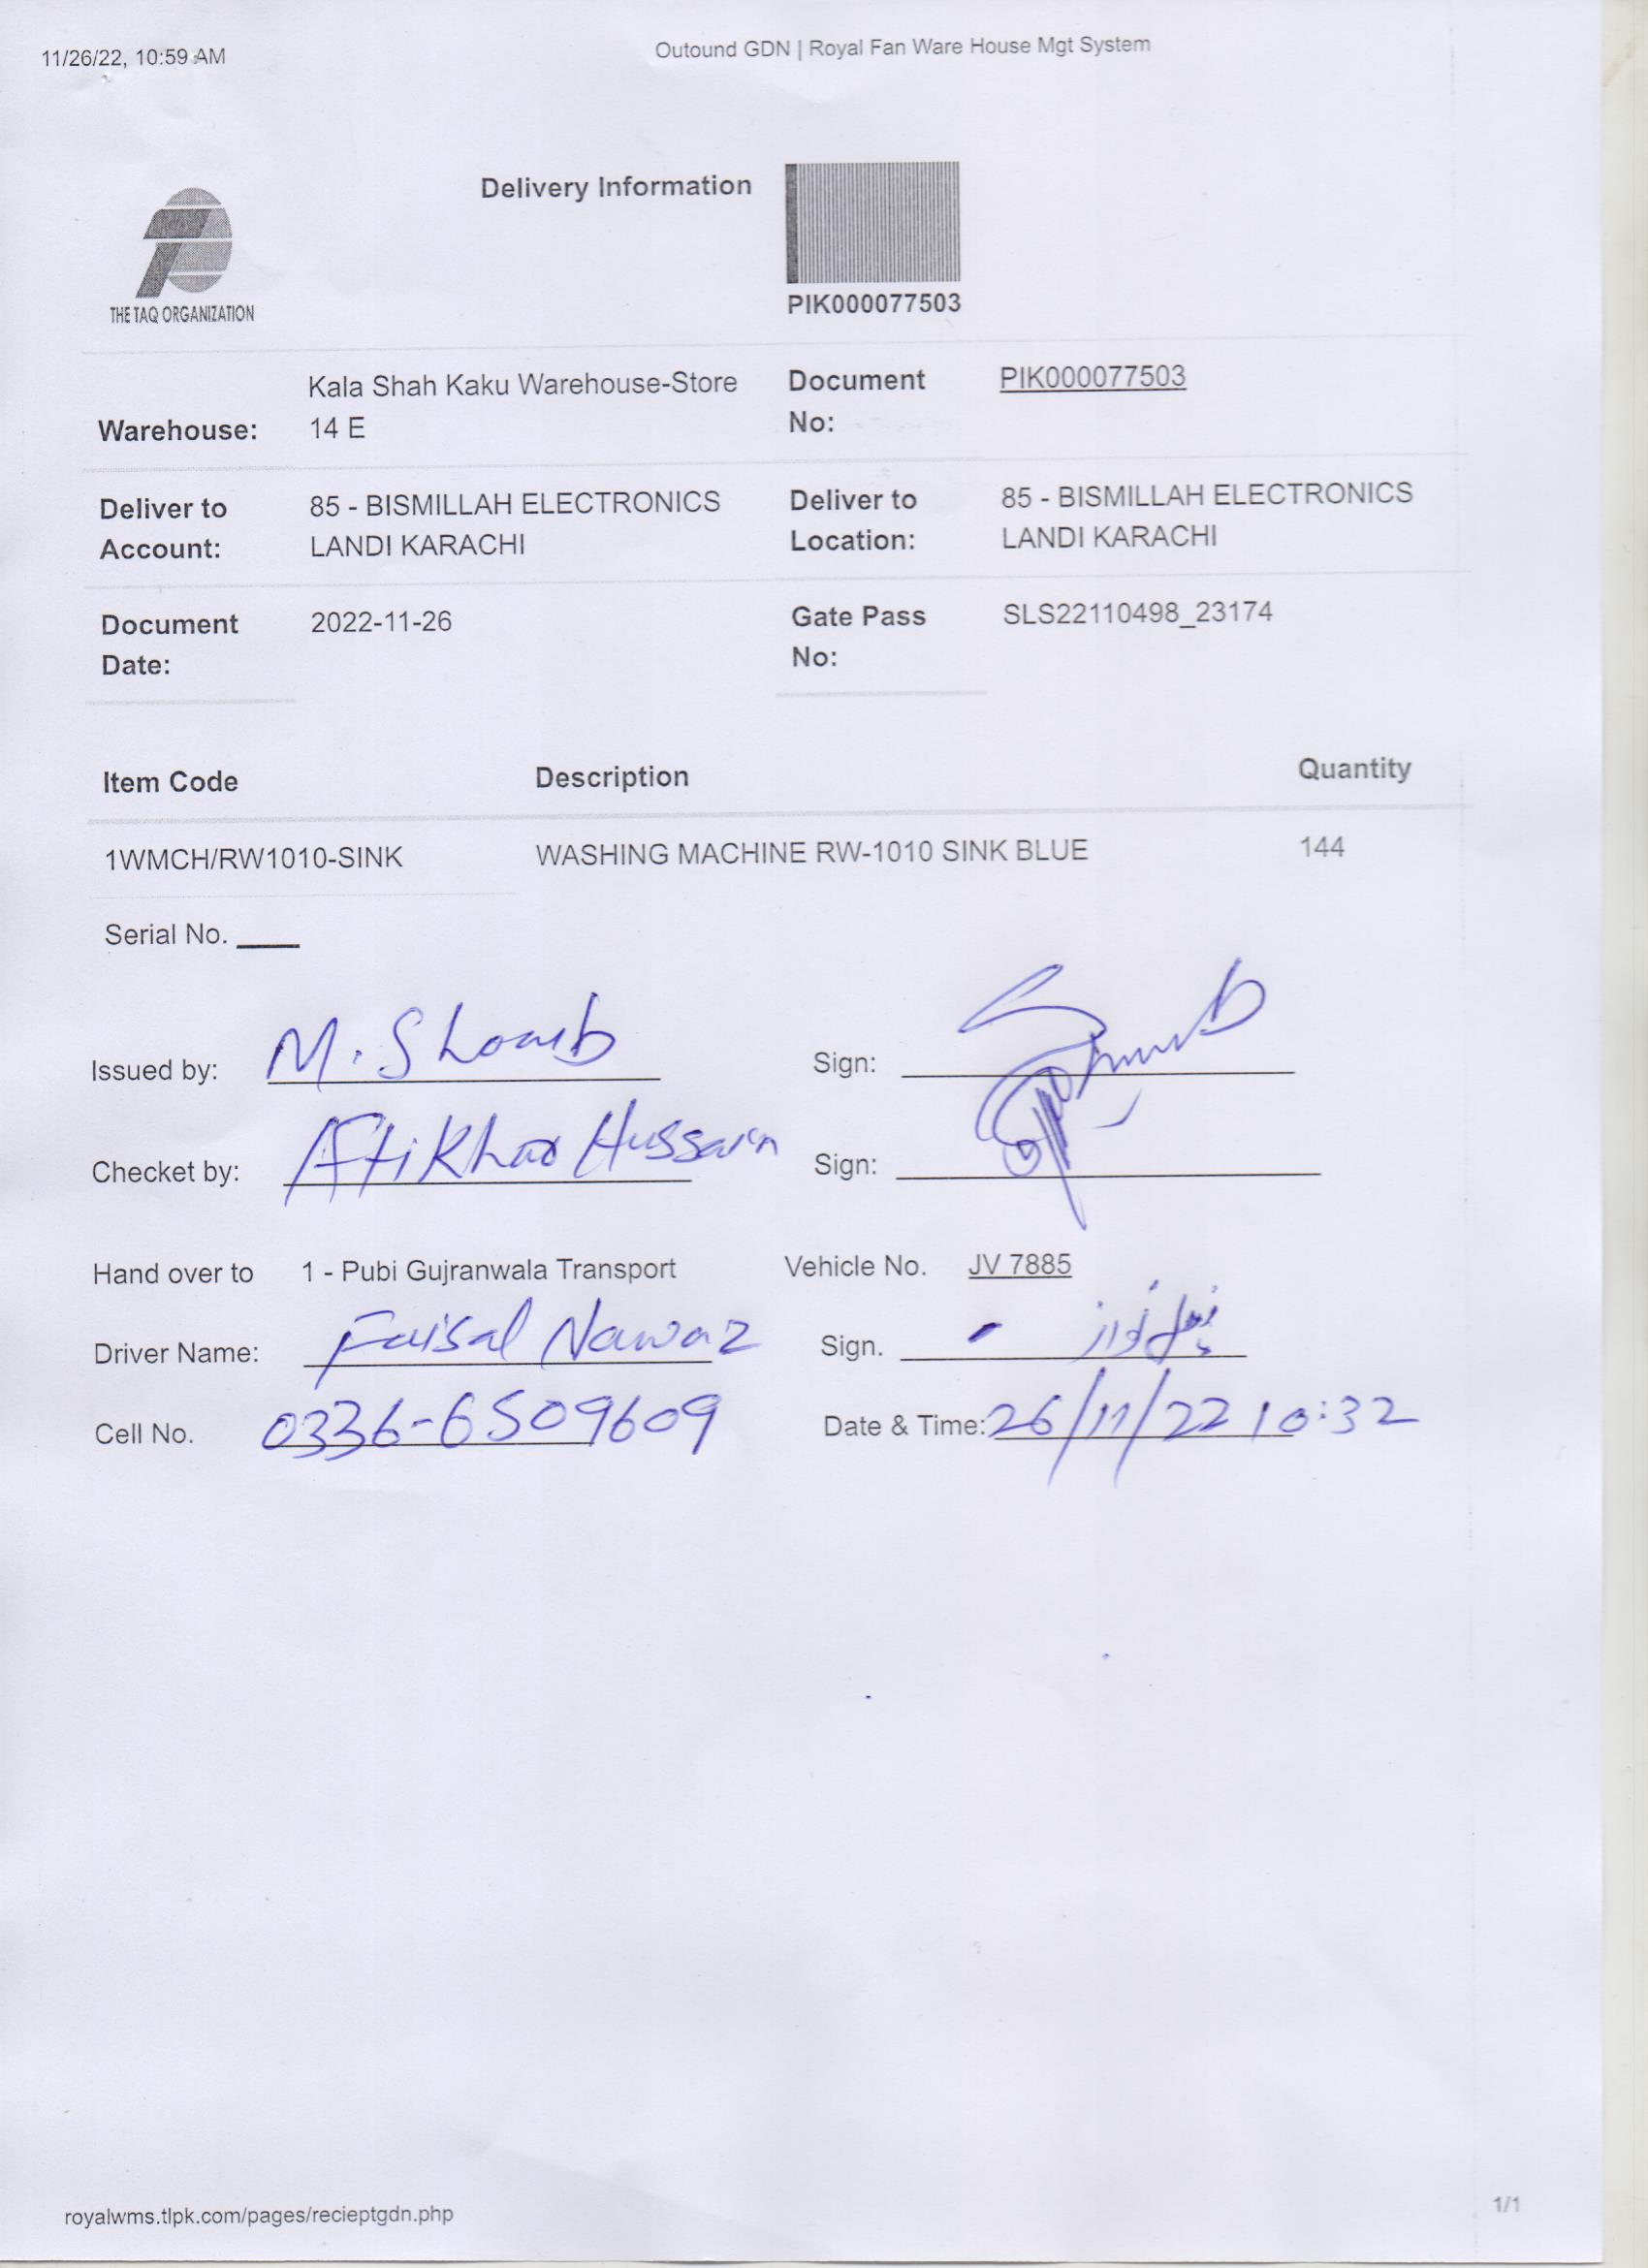 11/26/22, 10:59 AM
Outound GDN | Royal Fan Ware House Mgt System
THE TAQ ORGANIZATION
Delivery Information
PIK000077503
Warehouse: Kala Shah Kaku Warehouse-Store 14 E
Document No: PIK000077503
Deliver to Account: 85 - BISMILLAH ELECTRONICS LANDI KARACHI
Deliver to Location: 85 - BISMILLAH ELECTRONICS LANDI KARACHI
Document Date: 2022-11-26
Gate Pass No: SLS22110498_23174
Item Code Description Quantity
1WMCH/RW1010-SINK WASHING MACHINE RW-1010 SINK BLUE 144
Serial No.
Issued by: M. Shoaib Sign:
Checket by: Aftikhar Hussain Sign:
Hand over to 1 - Pubi Gujranwala Transport Vehicle No. JV 7885
Driver Name: Faisal Nawaz Sign.
Cell No. 0336-6509609 Date & Time: 26/11/22 10:32
royalwms.tlpk.com/pages/recieptgdn.php
1/1